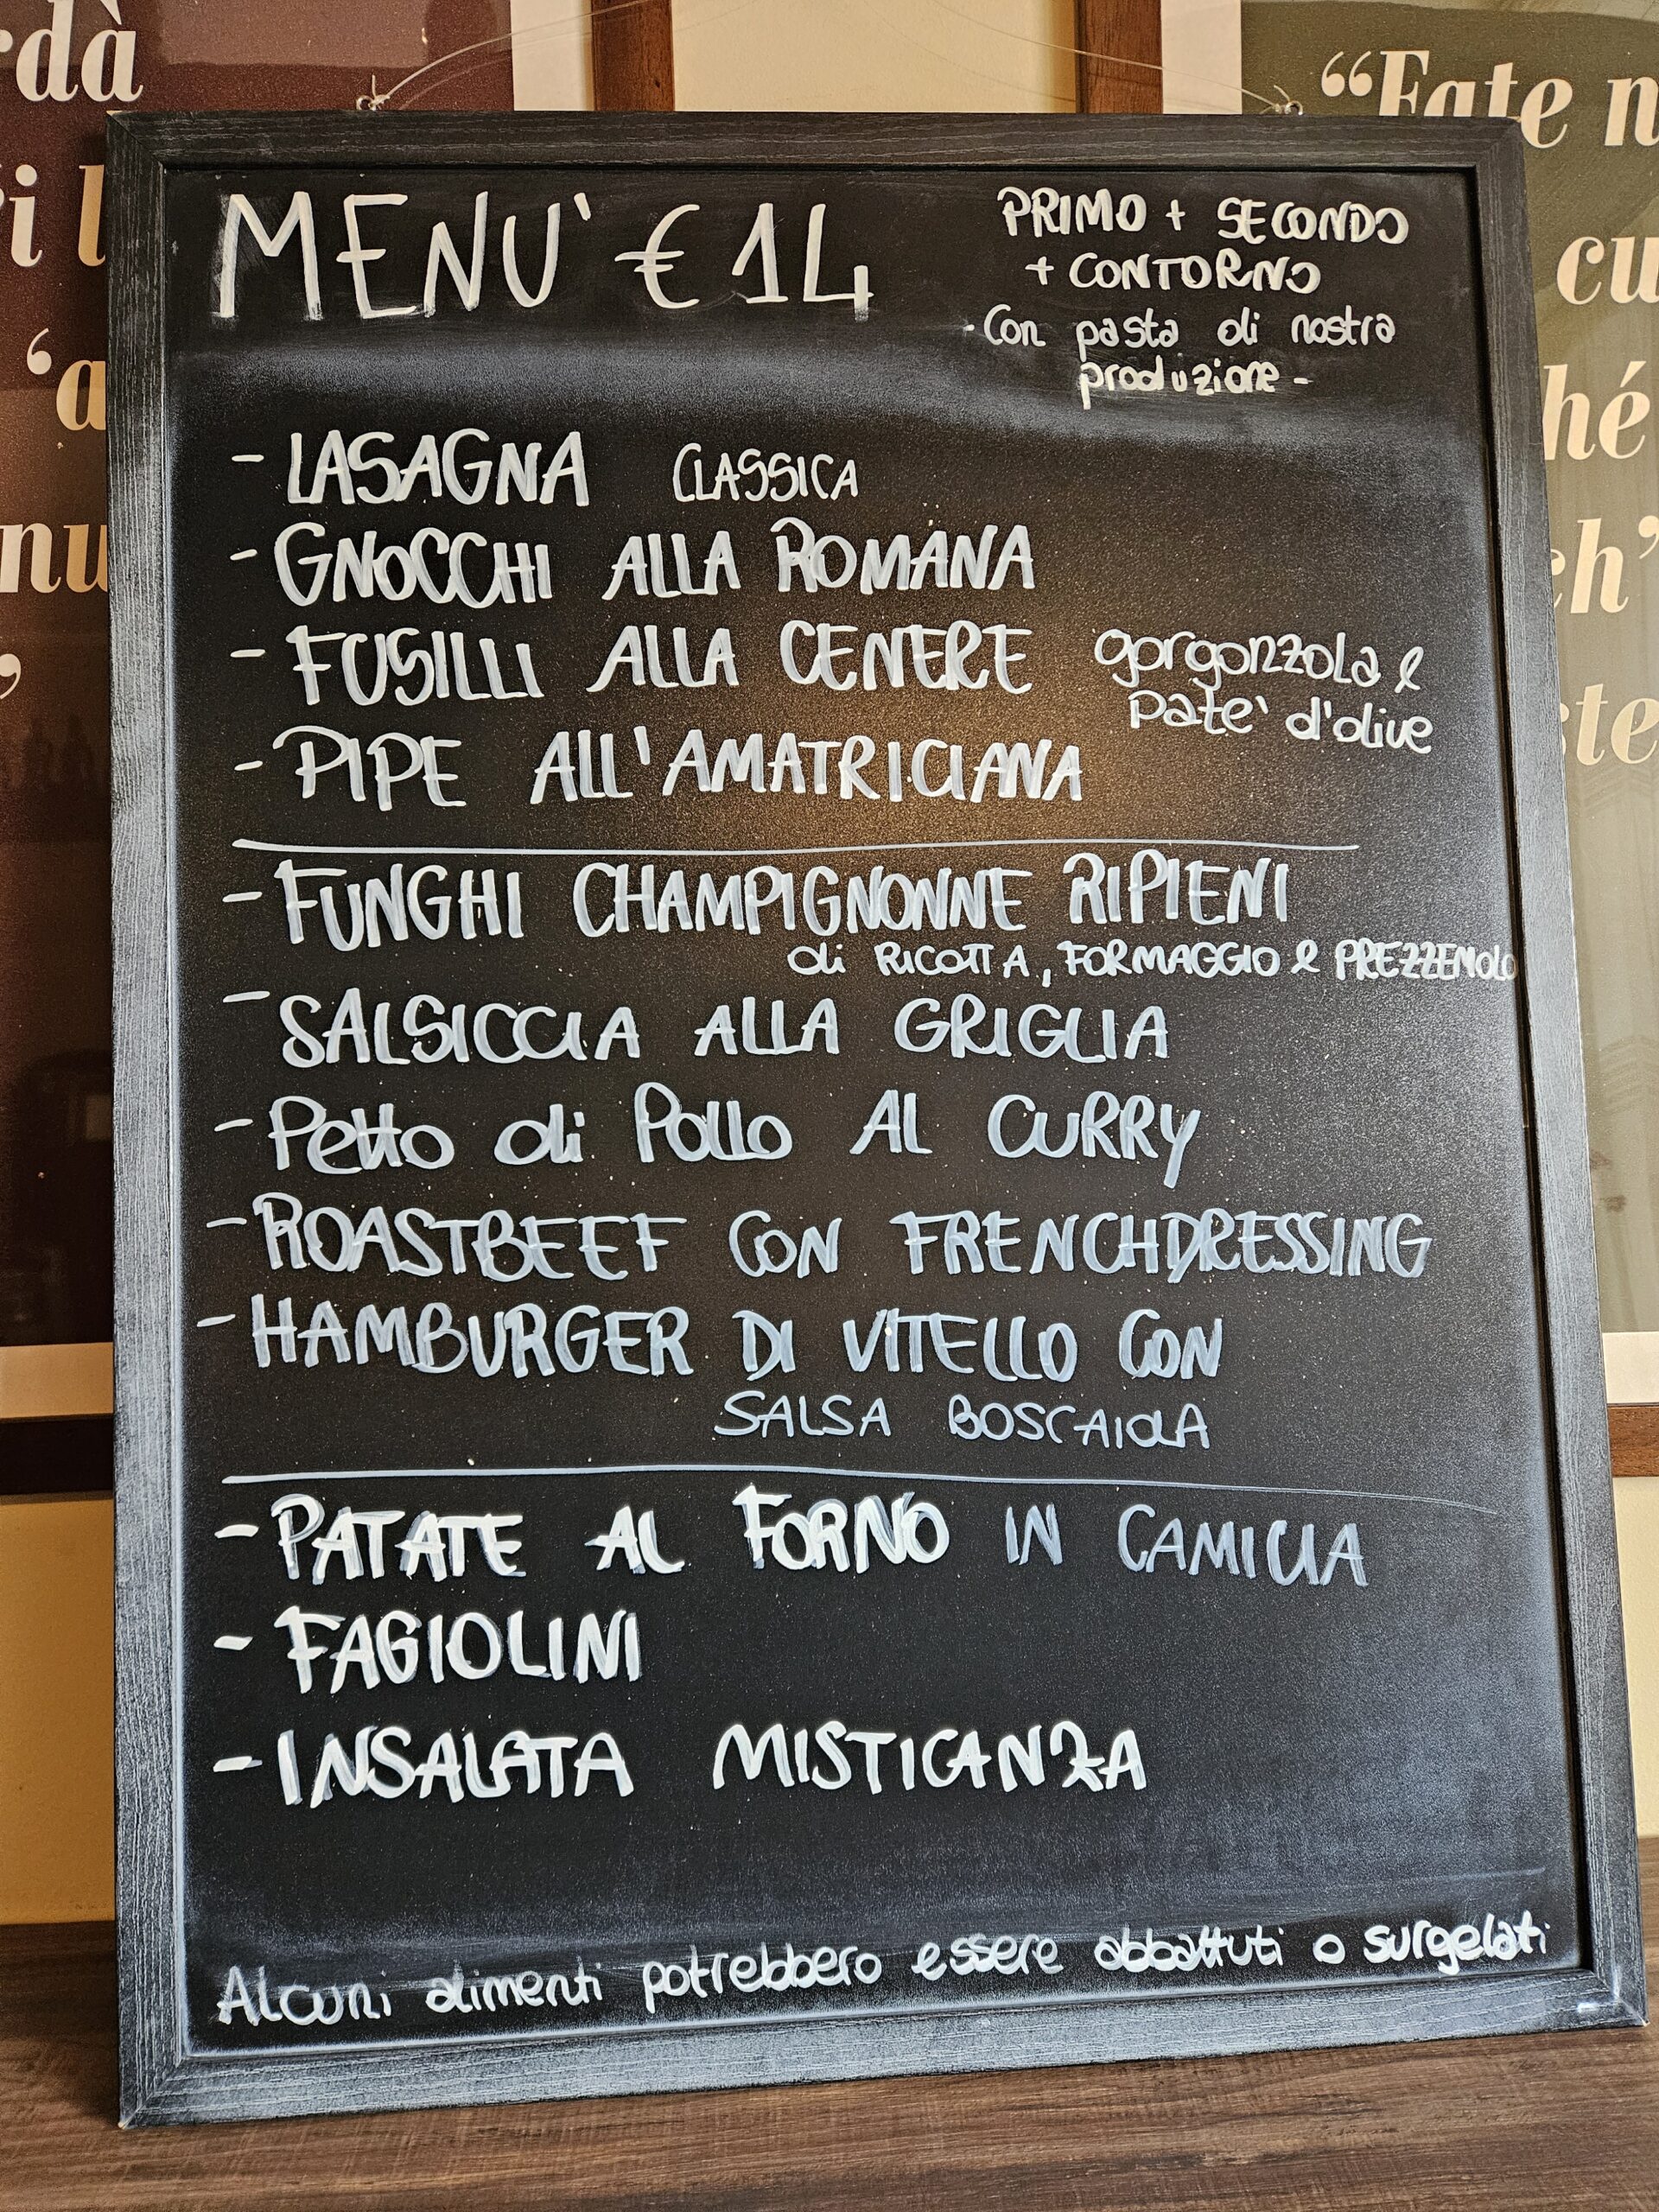 MENU' €14
PRIMO + SECONDO
+ CONTORNO
- Con pasta di nostra
produzione -
- LASAGNA CLASSICA
- GNOCCHI ALLA ROMANA
- FUSILLI ALLA CENERE gorgonzola e
Pate' d'olive
- PIPE ALL'AMATRICIANA
- FUNGHI CHAMPIGNONNE RIPIENI
di RICOTTA, FORMAGGIO e PREZZEMOLO
- SALSICCIA ALLA GRIGLIA
- Petto di Pollo AL CURRY
- ROASTBEEF CON FRENCHDRESSING
- HAMBURGER DI VITELLO CON
SALSA BOSCAIOLA
- PATATE AL FORNO IN CAMICIA
- FAGIOLINI
- INSALATA MISTICANZA
Alcuni alimenti potrebbero essere abbattuti o surgelati
“Fate n
cu
hé
ch’
ste
rdà
i l
‘a
nu
’